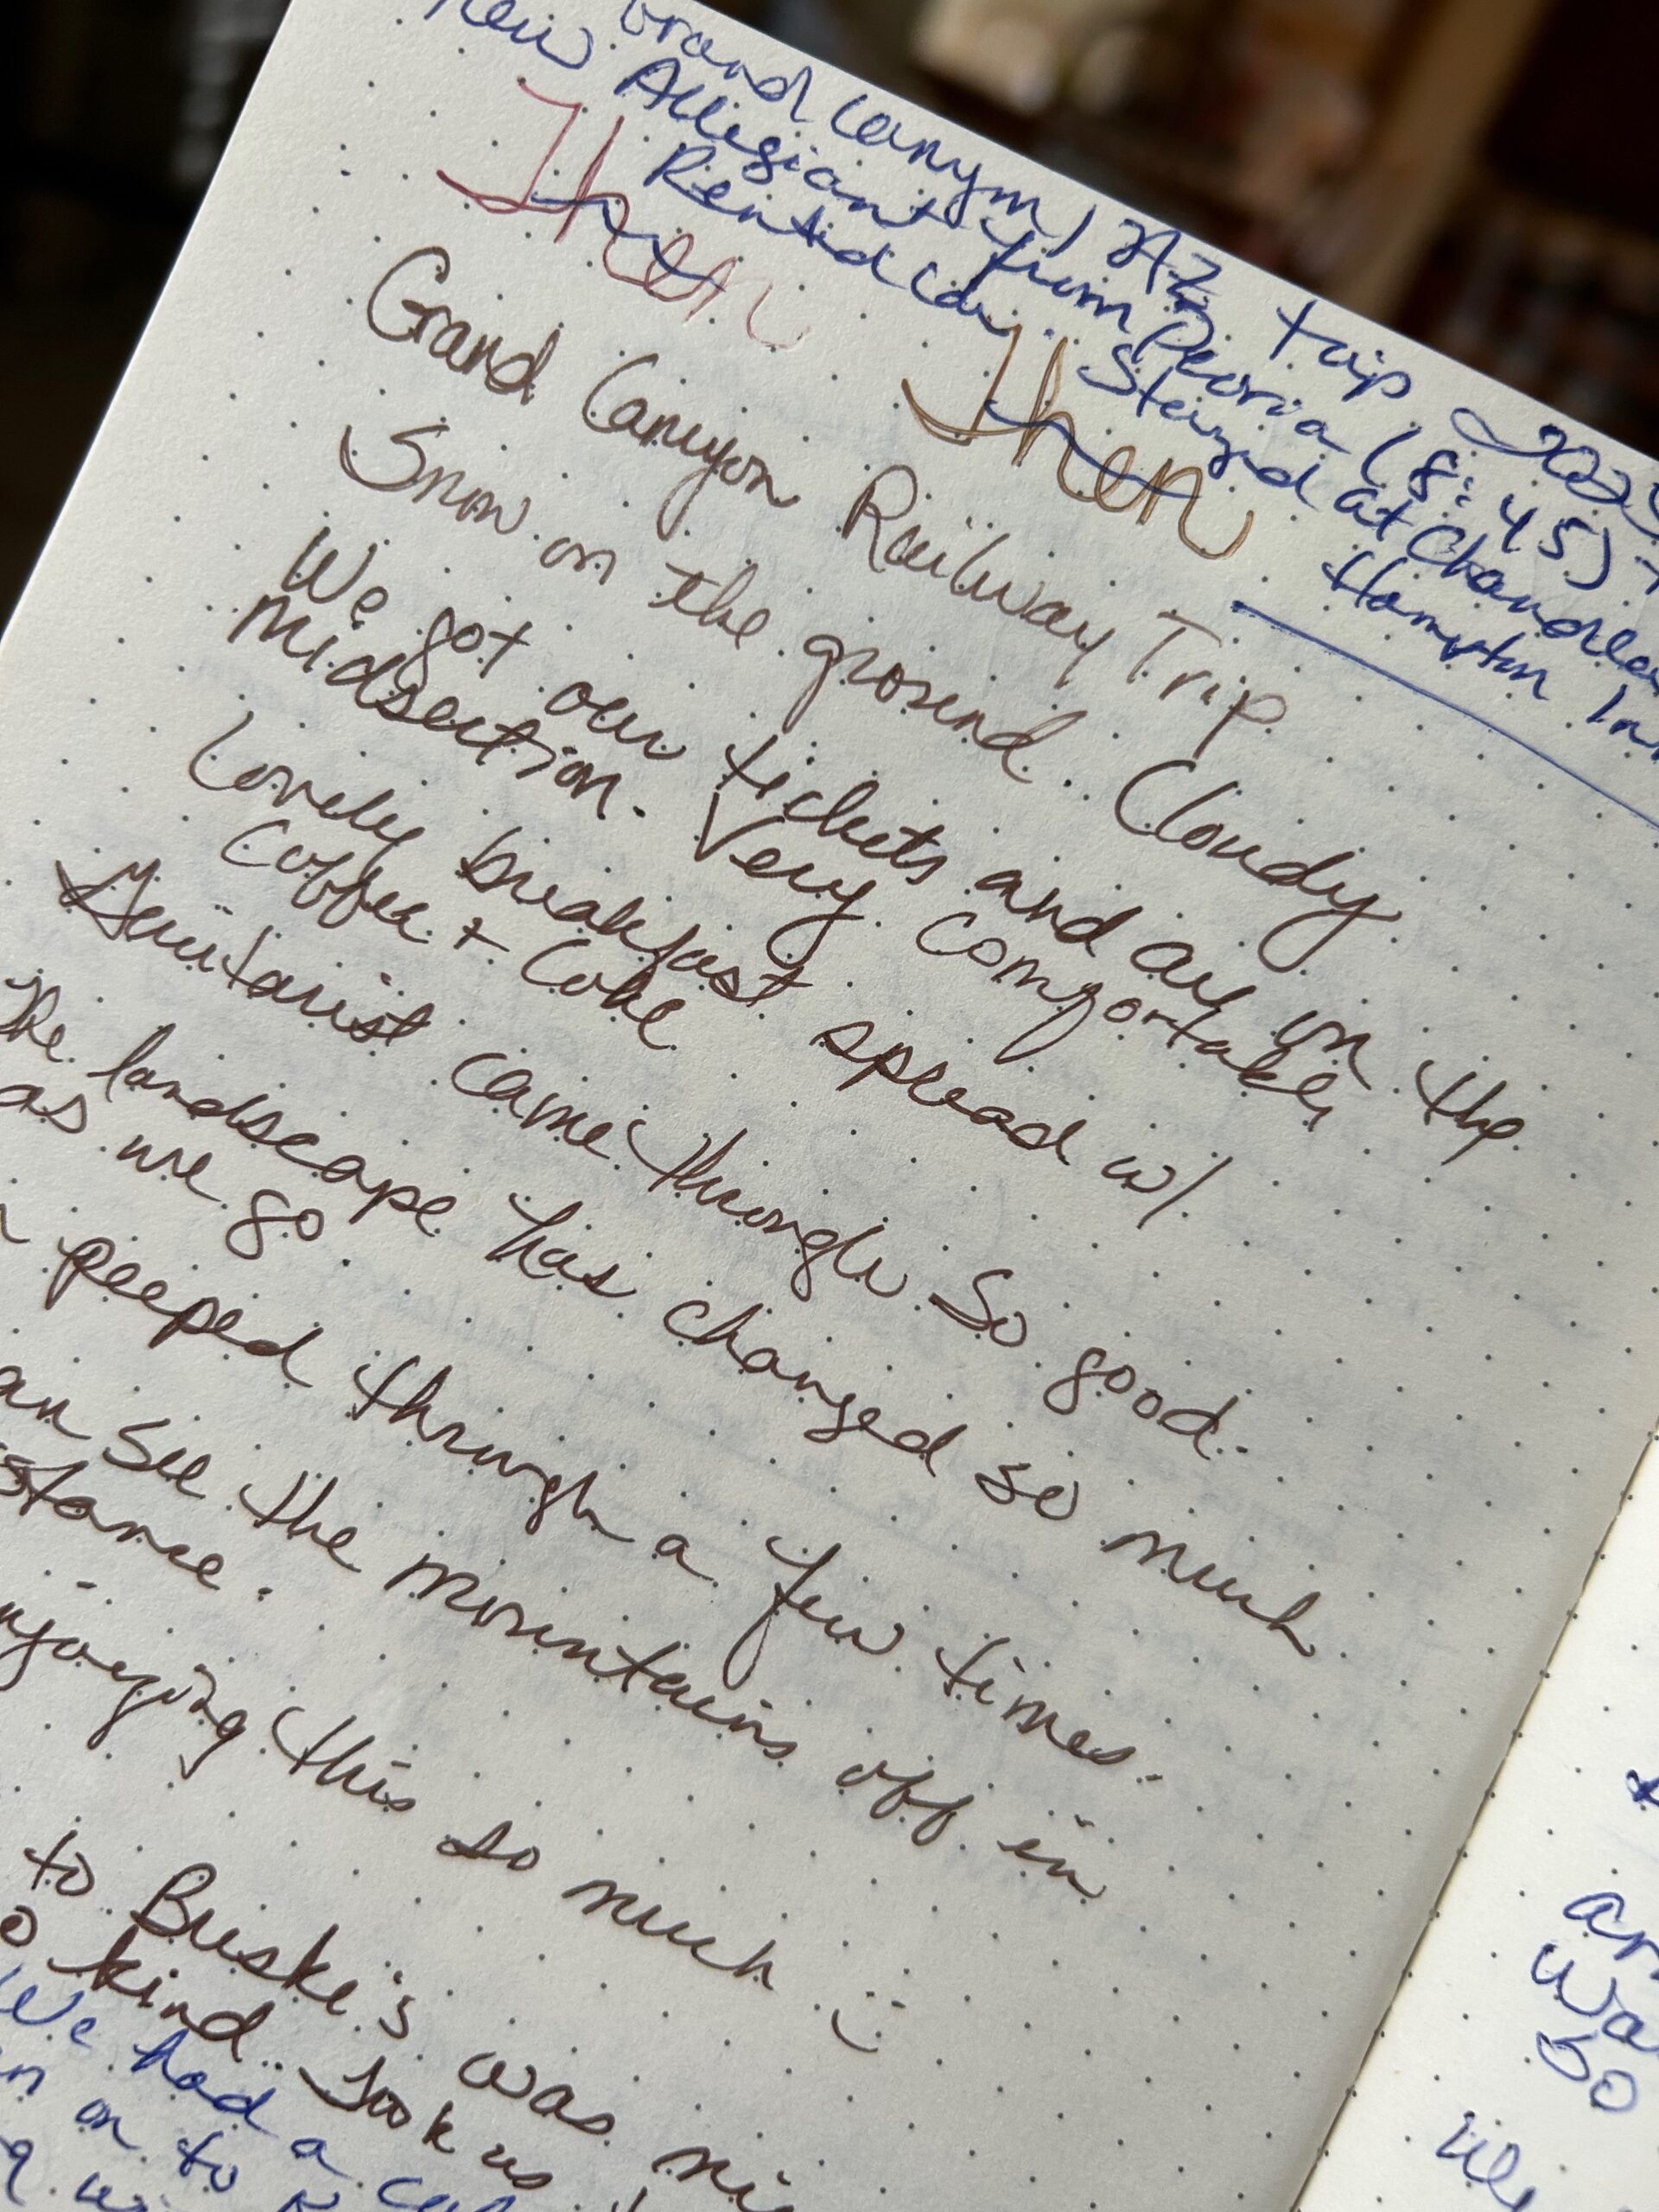 Grand Canyon, AZ trip
Flew Allegiant from Peoria (8:45)
Rented car. Stayed at Chandler
Hampton Inn
Then
Then
Grand Canyon Railway Trip
Snow on the ground. Cloudy.
We got our tickets and are in the
midsection. Very comfortable,
Lovely breakfast spread w/
coffee + Coke
Guitarist came through. So good.
The landscape has changed so much
as we go.
peeped through a few times.
an see the mountains off in
stance.
njoying this so much :)
to Buske's was ni
o kind. Took us
We had a
n on to
ar
wa
so
We